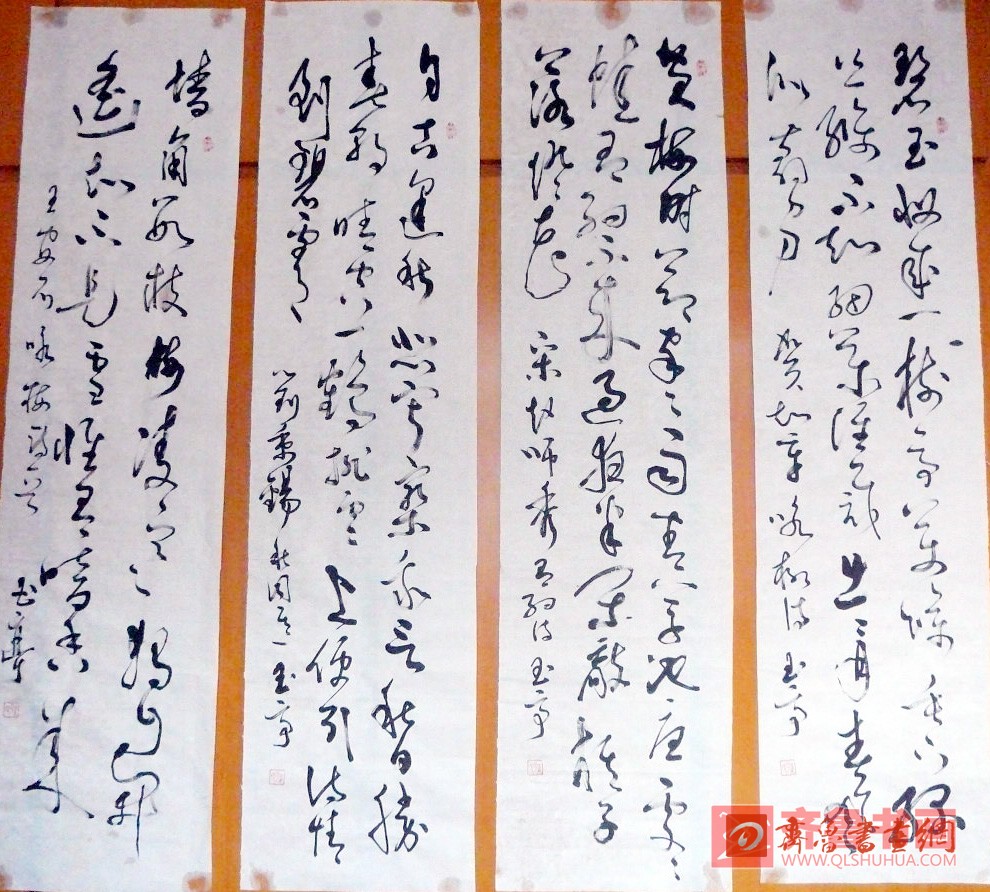 碧玉妆成一树高万条垂下绿
丝绦不知细叶谁裁出二月春风
似剪刀 贺知章咏柳诗 玉亭
黄梅时节家家雨青草池塘处处
蛙有约不来过夜半闲敲棋子
落灯花 宋赵师秀有约诗 玉亭
自古逢秋悲寂寥我言秋日胜
春朝晴空一鹤排云上便引诗情
到碧霄 刘禹锡秋词之一 玉亭
墙角数枝梅凌寒独自开
遥知不是雪惟有暗香来
王安石咏梅诗 玉亭
齊魯書畫網
WWW.QLSHUHUA.COM